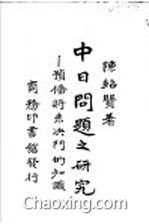 陳紹賢著
中日問題之研究
—預備將來決鬥的知識
商務印書館發行
Chaoxing.com